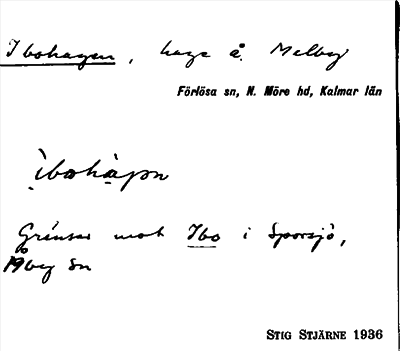 Ibohagen, hage å Melby
Förlösa sn, N. Möre hd, Kalmar län
ìbohàgən
Gränsar mot Ibo i Sporsjö,
Åby sn
STIG STJÄRNE 1936